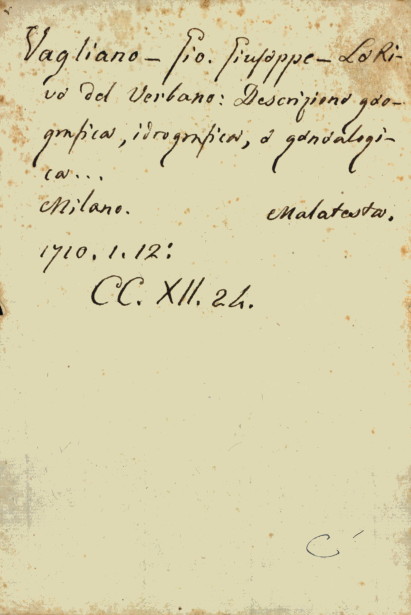 Vagliano - Gio. Giuseppe - Le Ri-
ve del Verbano: Descrizione geo-
grafica, idrografica, e genealogi-
ca...
Milano. Malatesta.
1710. 1. 12:
CC. XII. 24.
C